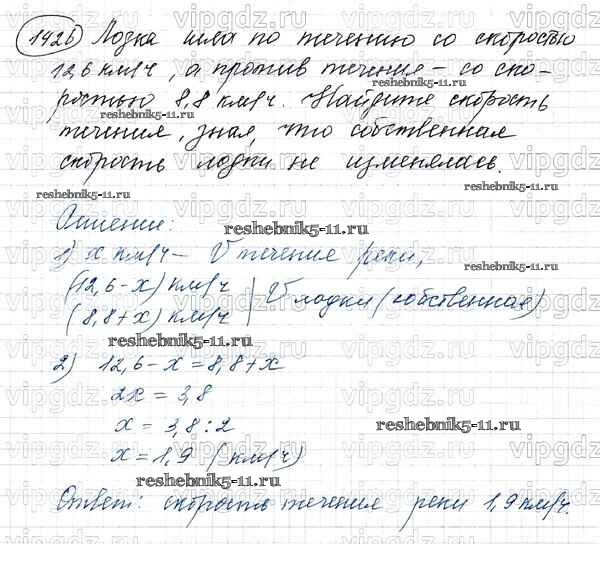 1426 Лодка шла по течению со скоростью
12,6 км/ч, а против течения – со ско-
ростью 8,8 км/ч. Найдите скорость
течения, зная, что собственная
скорость лодки не изменялась.
reshebnik5-11.ru
Решение:
reshebnik5-11.ru
1) x км/ч – V течение реки,
(12,6-x) км/ч
(8,8+x) км/ч
V лодки (собственная)
reshebnik5-11.ru
2) 12,6-x=8,8+x
2x = 3,8
x = 3,8:2
reshebnik5-11.ru
x = 1,9 (км/ч)
reshebnik5-11.ru
Ответ: скорость течения реки 1,9 км/ч.
vipgdz.ru